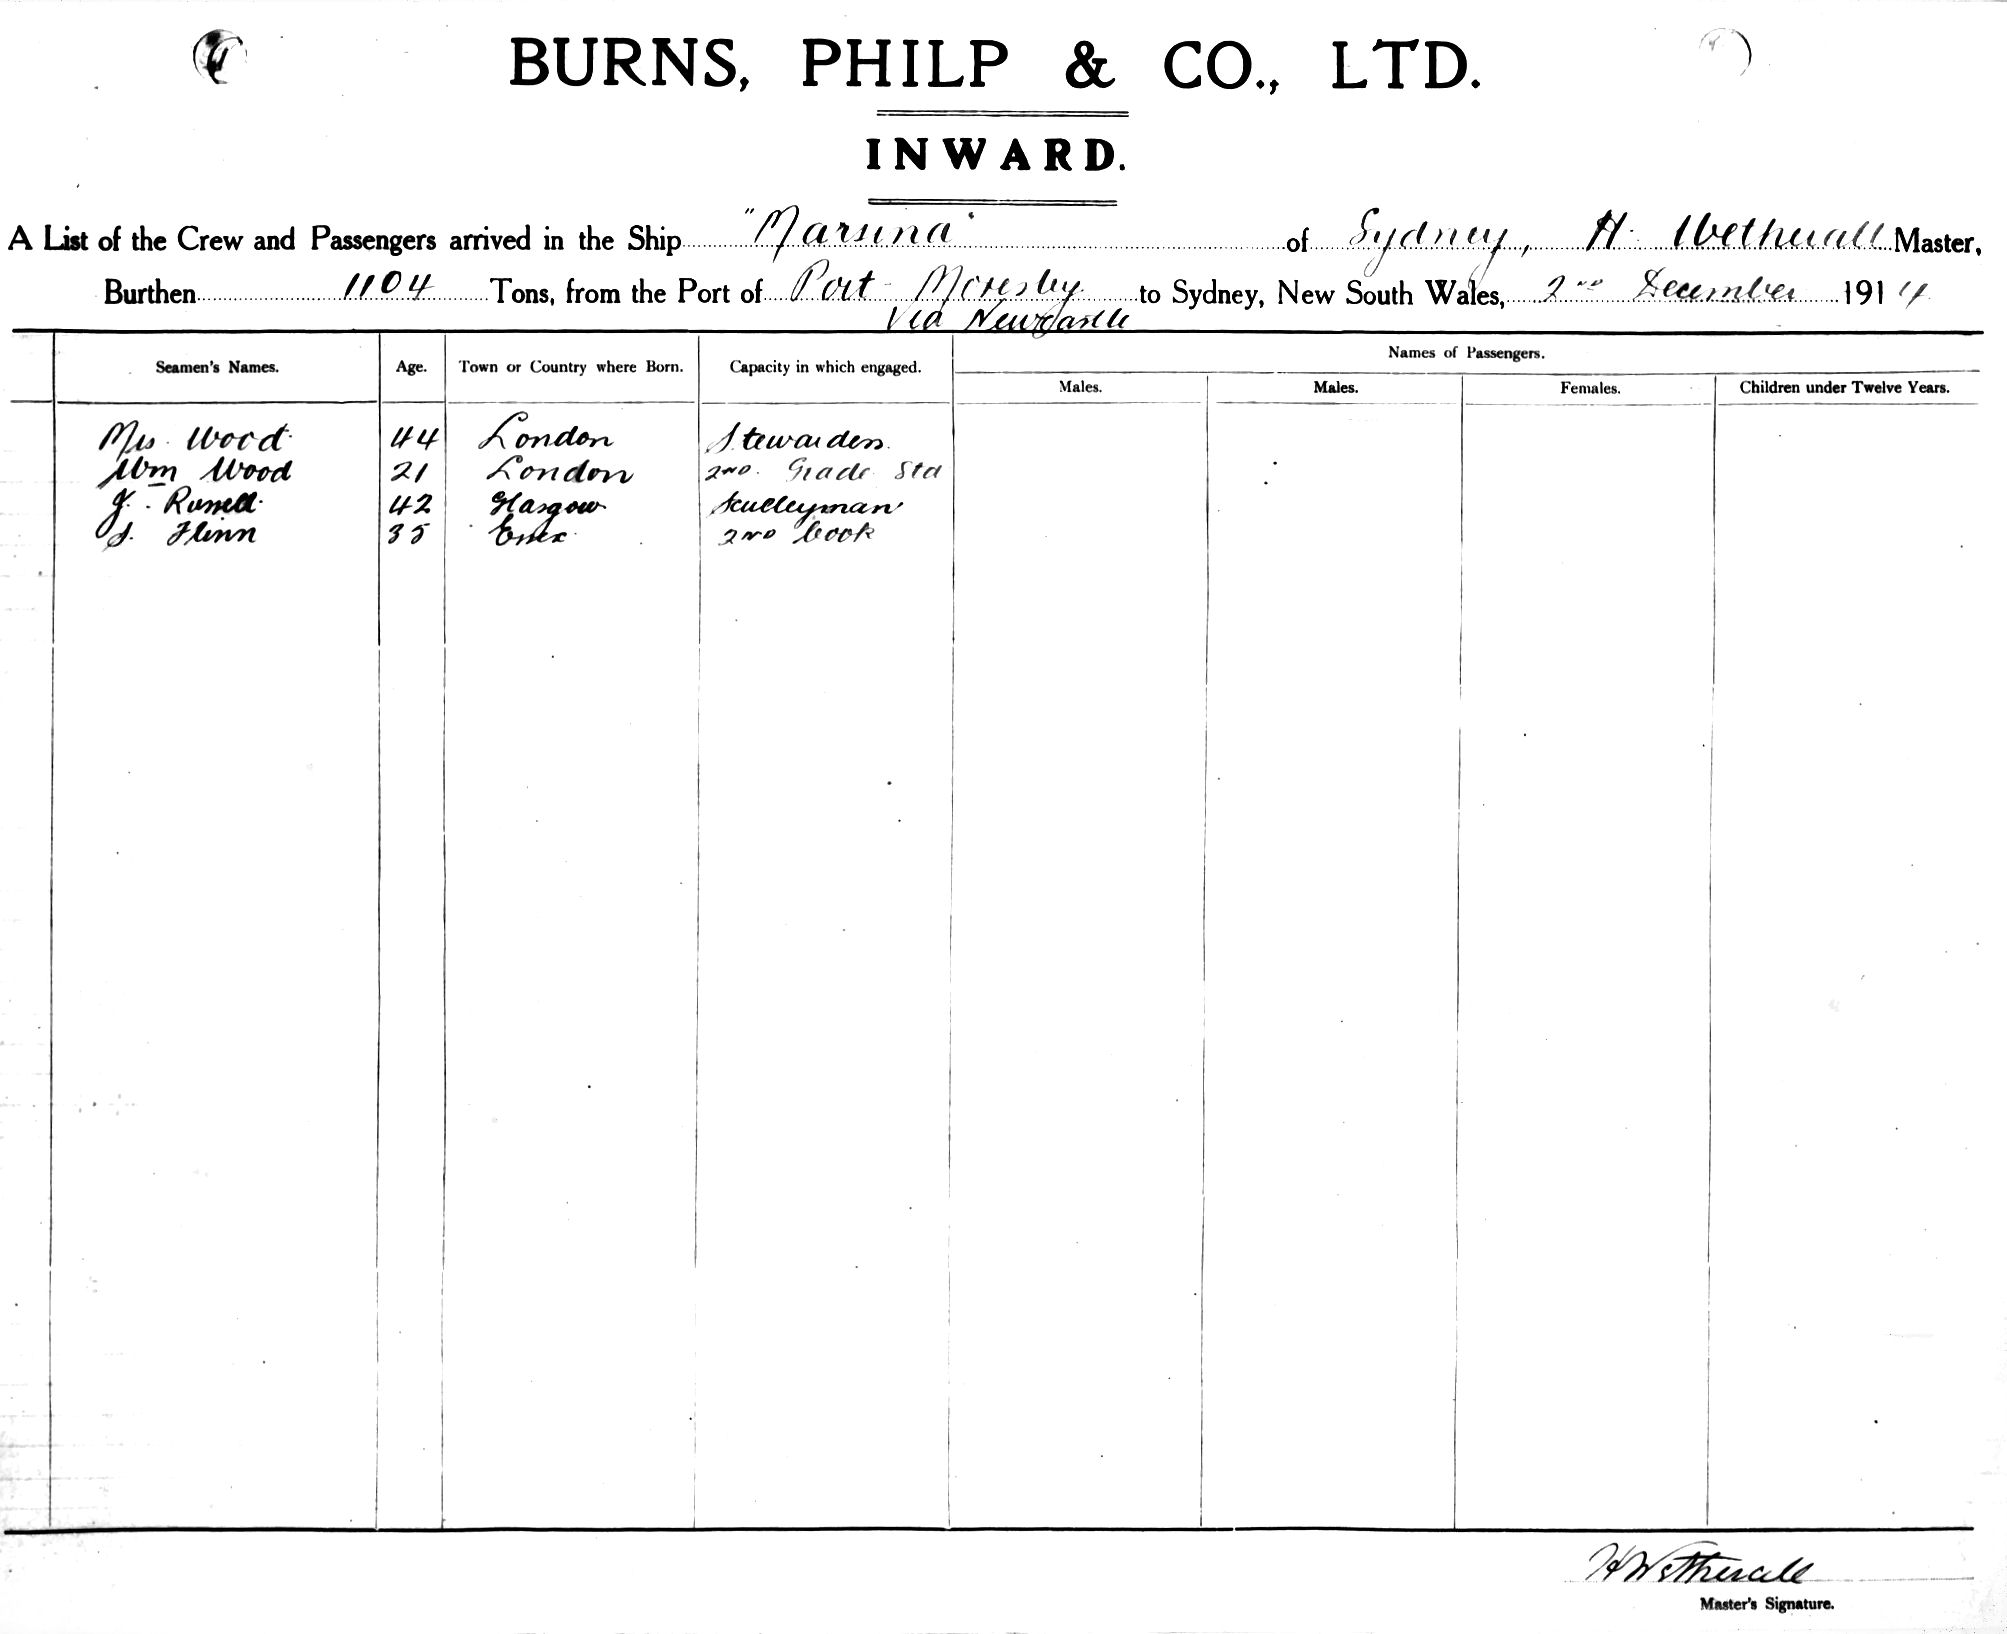 BURNS, PHILP & CO., LTD.
INWARD.
A List of the Crew and Passengers arrived in the Ship "Marsina" of Sydney, H. Wetherall Master,
Burthen 1104 Tons, from the Port of Port Moresby to Sydney, New South Wales, 2nd December 1914
Via Newcastle
Seamen's Names. Age. Town or Country where Born. Capacity in which engaged. Names of Passengers.
Males. Males. Females. Children under Twelve Years.
Mrs. Wood 44 London Stewardess
Wm Wood 21 London 2nd. Grade Std
J. Russell 42 Glasgow Sculleyman
J. Flinn 35 Essex 2nd Cook
H Wetherall
Master's Signature.